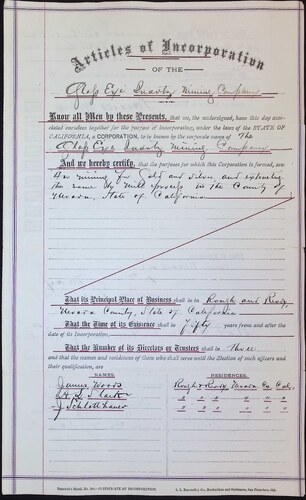 Articles of Incorporation
OF THE
Glass Eye Quartz Mining Company
Know all Men by these Presents, that we, the undersigned, have this day
associated ourselves together for the purpose of incorporating, under the laws of the STATE OF
CALIFORNIA, a CORPORATION, to be known by the corporate name of The
Glass Eye Quartz Mining Company
And we hereby certify, that the purposes for which this Corporation is formed, are
for mining for Gold and silver, and extracting
the same by Mill process in the County of
Nevada, State of California
That its Principal Place of Business shall be in Rough and Ready,
Nevada County, State of California
That the Term of its Existence shall be Fifty years from and after the
date of its Incorporation.
That the Number of its Directors or Trustees shall be three
and that the names and residences of those who shall serve until the Election of such officers and
their qualification, are
NAMES. RESIDENCES.
James Woods Rough & Ready, Nevada Co. Cal.
J Schlotthauer " " " "